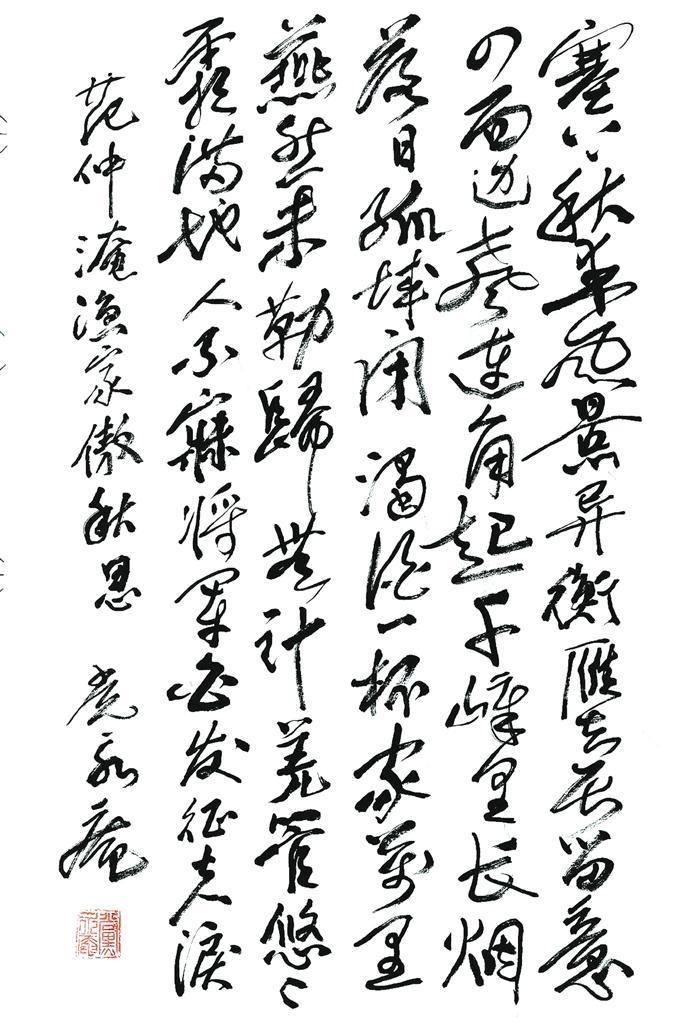 塞下秋来风景异衡雁去无留意
四面边声连角起千嶂里长烟
落日孤城闭濁酒一杯家萬里
燕然未勒歸無计羌管悠悠
霜满地人不寐将军白发征夫淚
范仲淹渔家傲秋思 党永庵